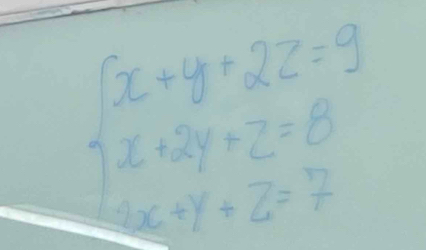 x + y + 2z = 9
x + 2y + z = 8
2x + y + z = 7